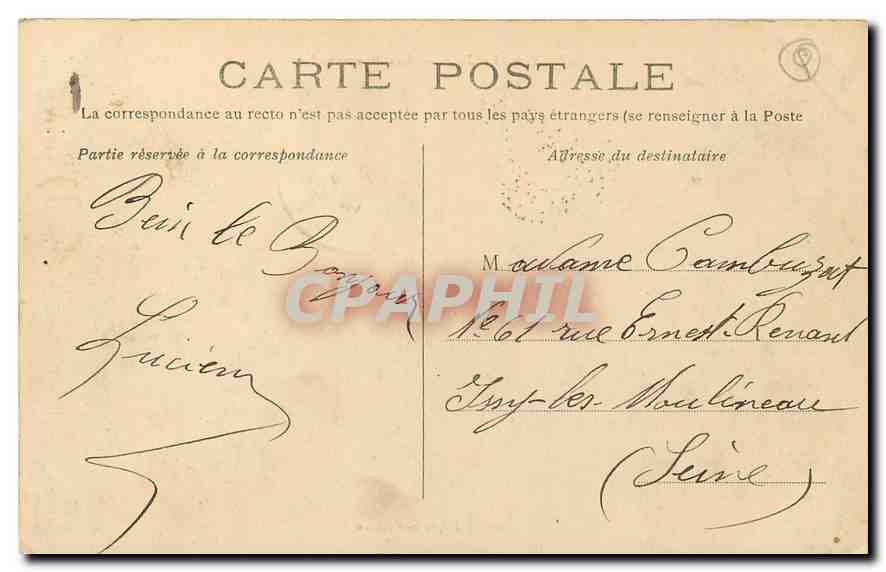 CARTE POSTALE
La correspondance au recto n'est pas acceptée par tous les pays étrangers (se renseigner à la Poste
Partie réservée à la correspondance
Bein le
Bonjour
Lucien
Adresse du destinataire
Madame Cambuzat
No 61 rue Ernest-Renant
Issy-les-Moulineau
(Seine)
CPAPHIL